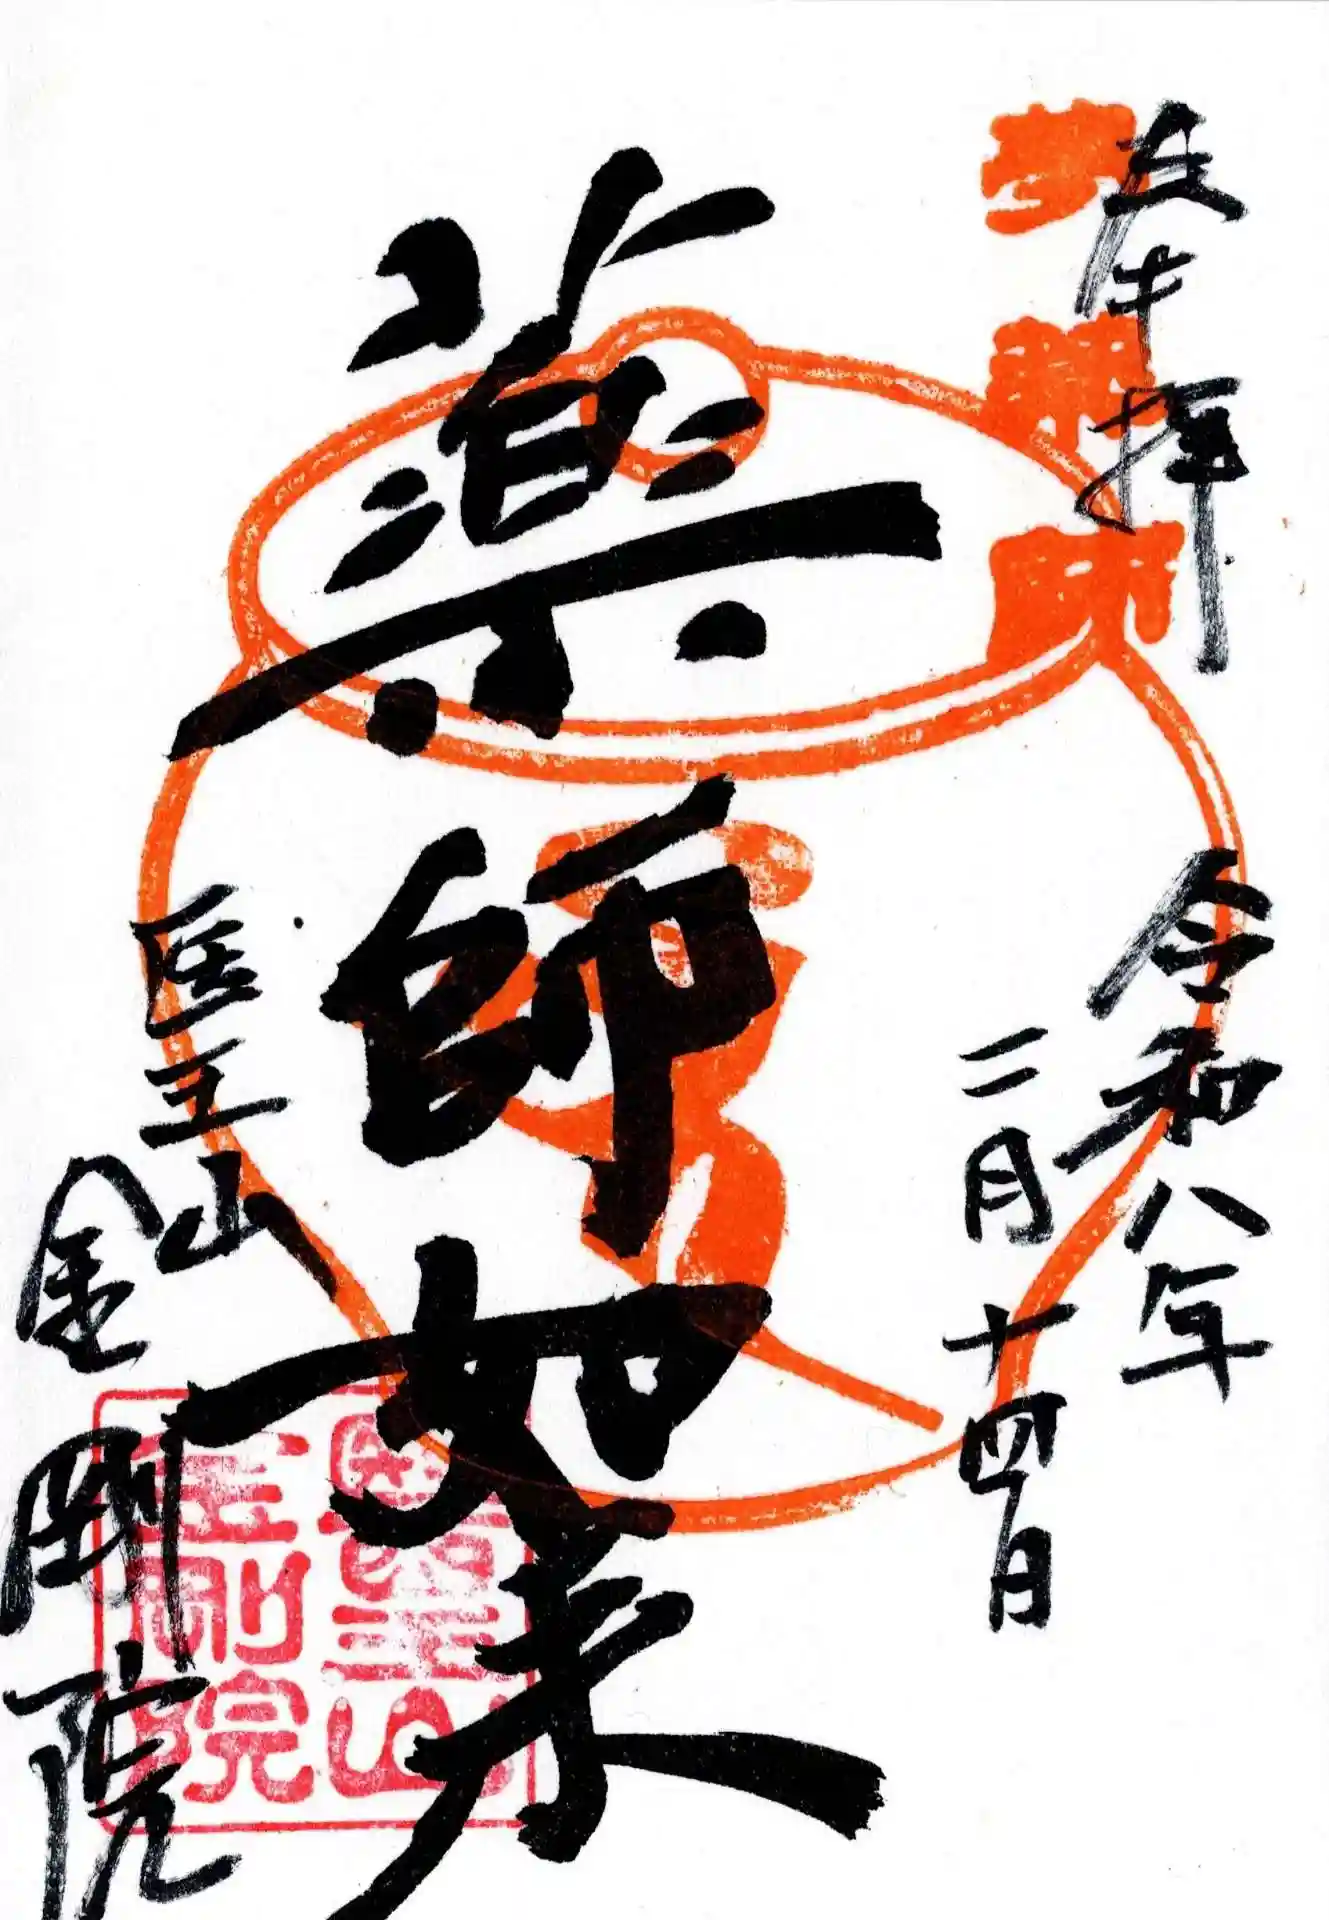 奉拝
令和八年
二月十四日
薬師如来
医王山
金剛院
醫王山
金剛院